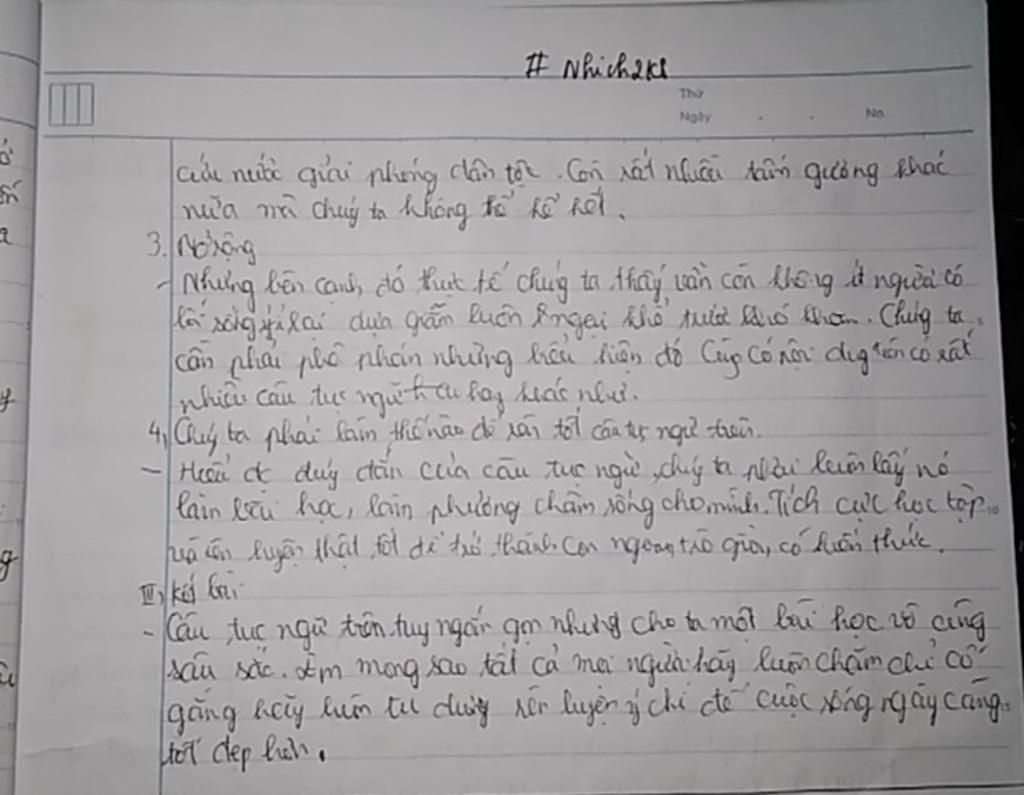 # Nhich2k8
Thứ
Ngày . . No.
cứu nước giải phóng dân tộc. Còn rất nhiều tấm gương khác
nữa mà chúg ta không thể kể hết.
3. Mở rộng
- Nhưng bên cạnh, đó thực tế chúg ta thấy vẫn còn không ít người có
lối sống ỷ lại dựa dẫm luôn ngại khó trước khó khăn. Chúng ta
cần phải phê phán những biểu hiện đó Cũg có nội dug trên có rất
nhiều câu tục ngữ hay khác như.
4, Chúg ta phải làm thế nào để tốt câu tục ngữ trên.
- Hiểu đc đúg đắn của câu tục ngữ, chúg ta phải luôn lấy nó
làm bài học, làm phương châm sống cho mình. Tích cực học tập
và rèn luyện thật tốt để trở thành con ngoan trò giỏi, có kiến thức.
III, Kết bài
- Câu tục ngữ trên tuy ngắn gọn nhưng cho ta một bài học vô cùng
sâu sắc. Em mong sao tất cả mọi người hãy luôn chăm chỉ cố
gắng hãy luôn tu dưỡng rèn luyện ý chí để cuộc sống ngày càng
tốt đẹp hơn.